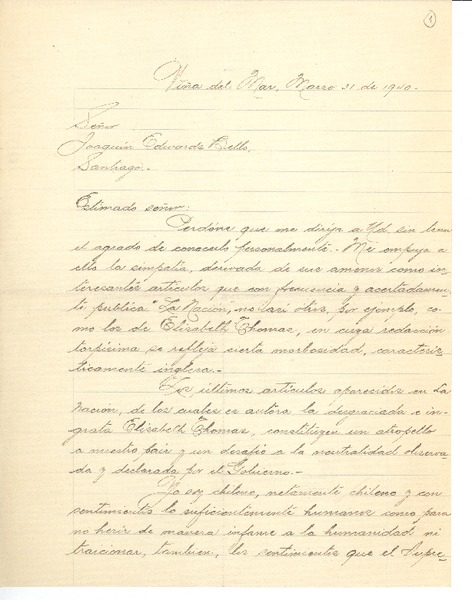 1
Viña del Mar, Marzo 31 de 1940.
Señor
Joaquín Edwards Bello.
Santiago.-
Estimado señor:
Perdóne que me dirija a Ud. sin tener
el agrado de conocerlo personalmente.- Me empuja a
ello la simpatía, derivada de sus amenos como in-
teresantes artículos que con frecuencia y acertadamen-
te publica "La Nación", no así otros, por ejemplo, co-
mo los de Elisabeth Thomas, en cuya redacción
torpísima se refleja cierta morbosidad, caracterís-
ticamente inglesa.-
Los últimos artículos aparecidos en La
Nación, de los cuales es autora la desgraciada e in-
grata Elisabeth Thomas, constituyen un atropello
a nuestro país y un desafío a la neutralidad observa-
da y declarada por el Gobierno.-
Yo soy chileno, netamente chileno y con
sentimientos lo suficientemente humanos como para
no herir de manera infame a la humanidad ni
traicionar, tambien, los sentimientos que el Supre-